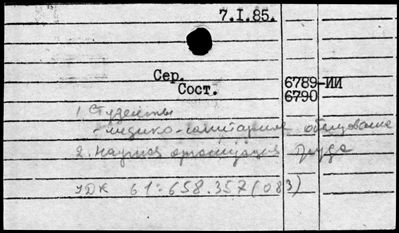 7.I.85.
Сер.
Сост.
6789-ИИ
6790
1. Студенты
- медико-санитарное обслуживание
2. Научная организация труда
УДК 61:658.357(083)